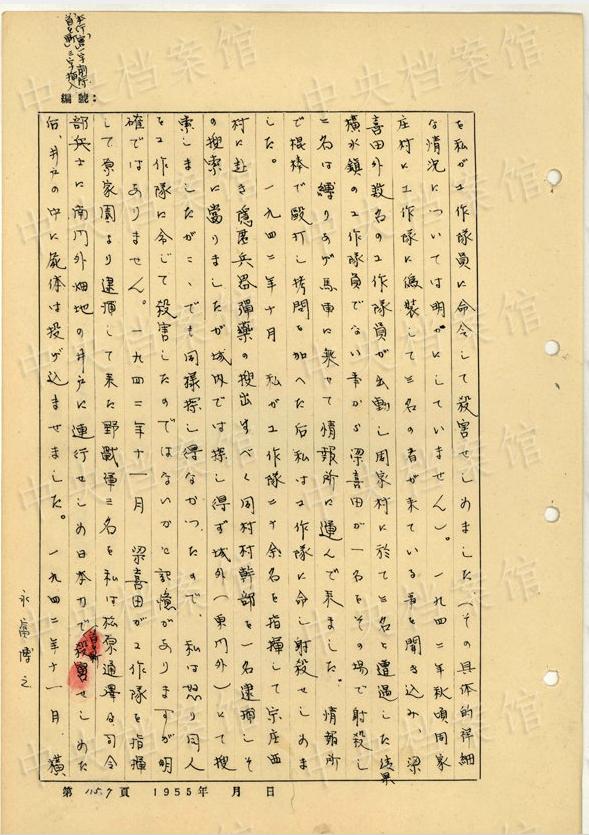 本行「窓」一字削除
「首を斬」三字挿入
編號：
を私が工作隊員に命令して殺害せしめました（その具体的詳細
な情況については明かにしていません）。一九四二年秋頃周家
庄村に工作隊に偽装して三名の者が来ている事を聞き込み、梁
喜田外数名の工作隊員が出動し周家村に於て三名と遭遇した結果
横水鎮の工作隊員でない事から梁喜田が一名をその場で射殺し
二名は縛りあげ馬車に乗せて情報所に運んで来ました。情報所
で棍棒で毆打し拷問を加へた后私は工作隊に命し射殺せしめま
した。一九四二年十月　私が工作隊二十余名を指揮して宗庄西
村に赴き隠匿兵器彈藥の捜出すべく同村村幹部を一名逮捕しそ
の捜索に當りましたが城内では探し得ず城外（東門外）にて捜
索しましたがここでも同様探し得なかったので、私は怒り同人
を工作隊に令じて殺害したのではないかと記憶がありますが明
確ではありません。一九四二年十一月　梁喜田が工作隊を指揮
して原家園より逮捕して来た野戰軍三名を私は松原通譯及司令
部兵士に南門外畑地の井戸に連行せしめ日本刀で首を斬せしめた
后、井戸の中に屍体は投げ込ませました。一九四二年十一月　橫
永富博之
第115.7頁　1955年　月　日
中央档案馆